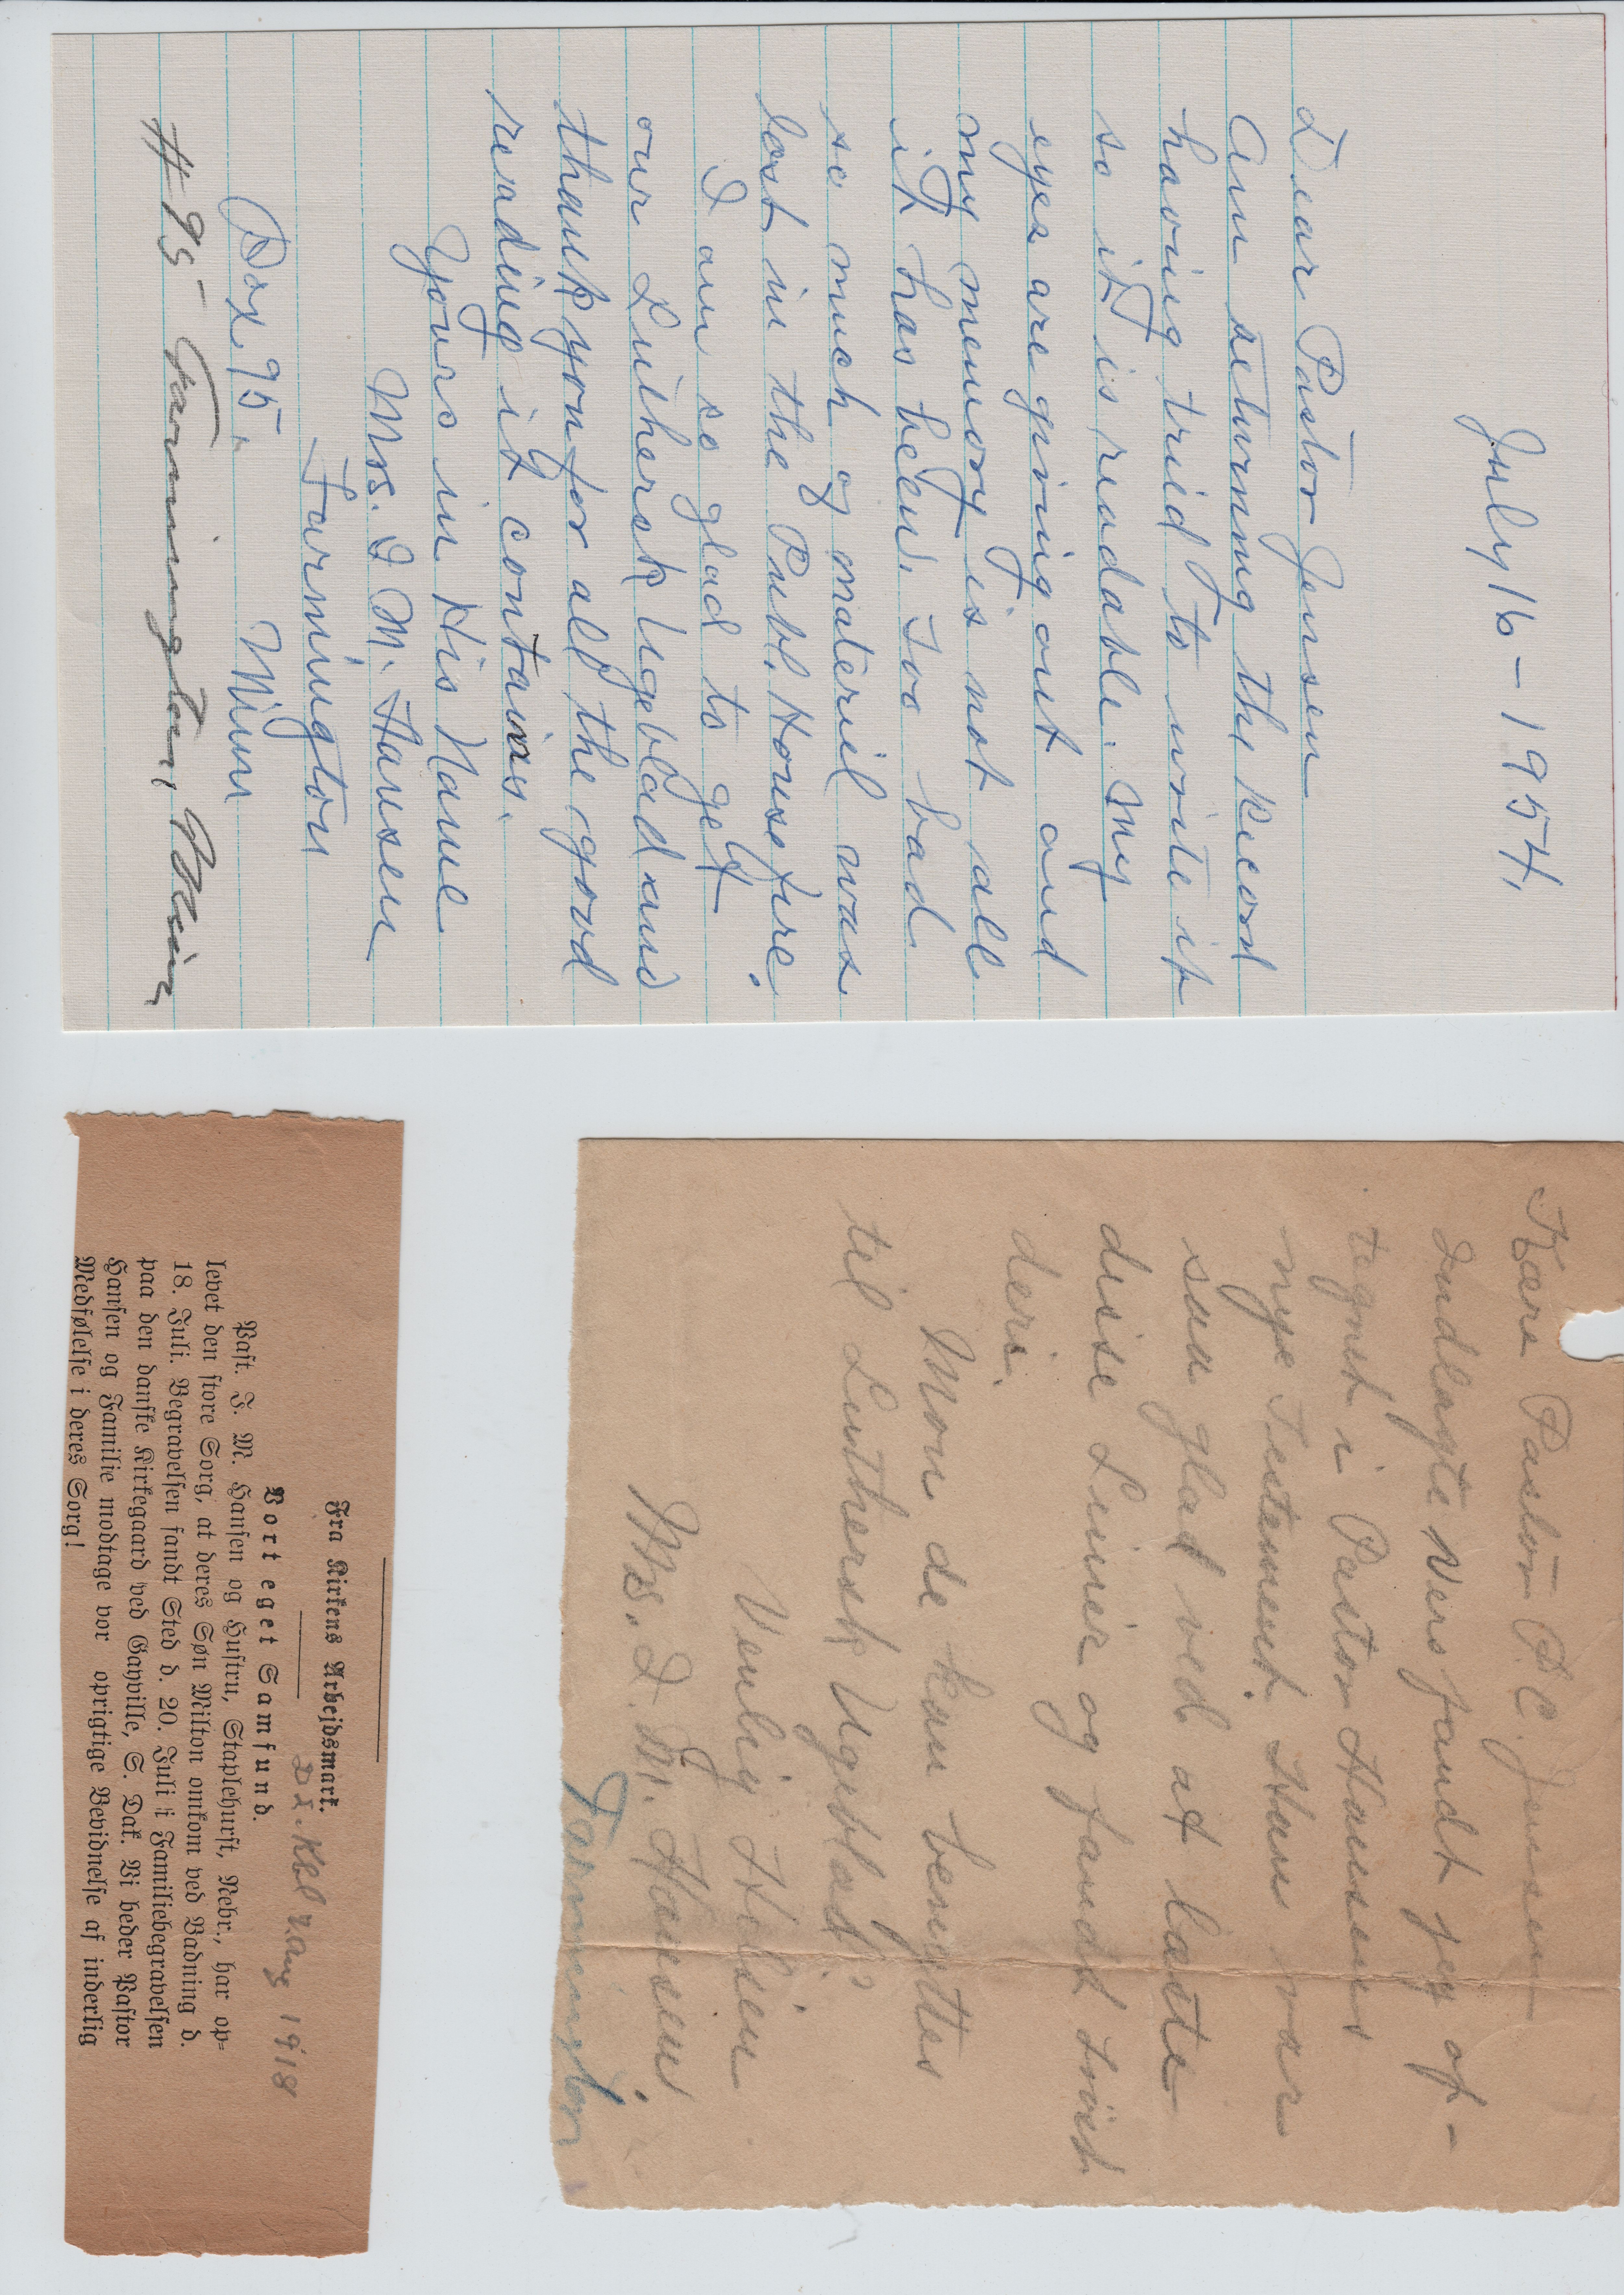 July 16 - 1954,
Dear Pastor Jensen
Am returning the record
having tried to write it
so it is readable. My
eyes are giving out and
my memory is not all
it has been. Too bad
so much og materiel was
lost in the Publ. House fire.
I am so glad to get
our Luthersk Ugeblad and
thank you for all the good
reading it contains.
Yours in His Name
Mrs. I M. Hansen
Farmington
Box 95. Minn
# 95 - Farmington, Minn
Kære Pastor P.C. Jensen
Indlagte vers fandt jeg op-
tegnet i Pastor Hansens
nye Testament. Han var
saa glad ved at læste
disse Linier og fandt trøst
deri.
Mon de kan benyttes
til Luthersk Ugeblad?
Venlig Hilsen
Mrs. I. M. Hansen.
Farmington
Fra Kirkens Arbejdsmark.
Dsk. Kbl. Aug 1918
Vort eget Samfund.
Past. I. M. Hansen og Hustru, Staplehurst, Nebr., har op-
levet den store Sorg, at deres Søn Milton omkom ved Badning d.
18. Juli. Begravelsen fandt Sted d. 20. Juli i Familiebegravelsen
paa den danske Kirkegaard ved Gayville, S. Dak. Vi beder Pastor
Hansen og Familie modtage vor oprigtige Bevidnelse af inderlig
Medfølelse i deres Sorg!